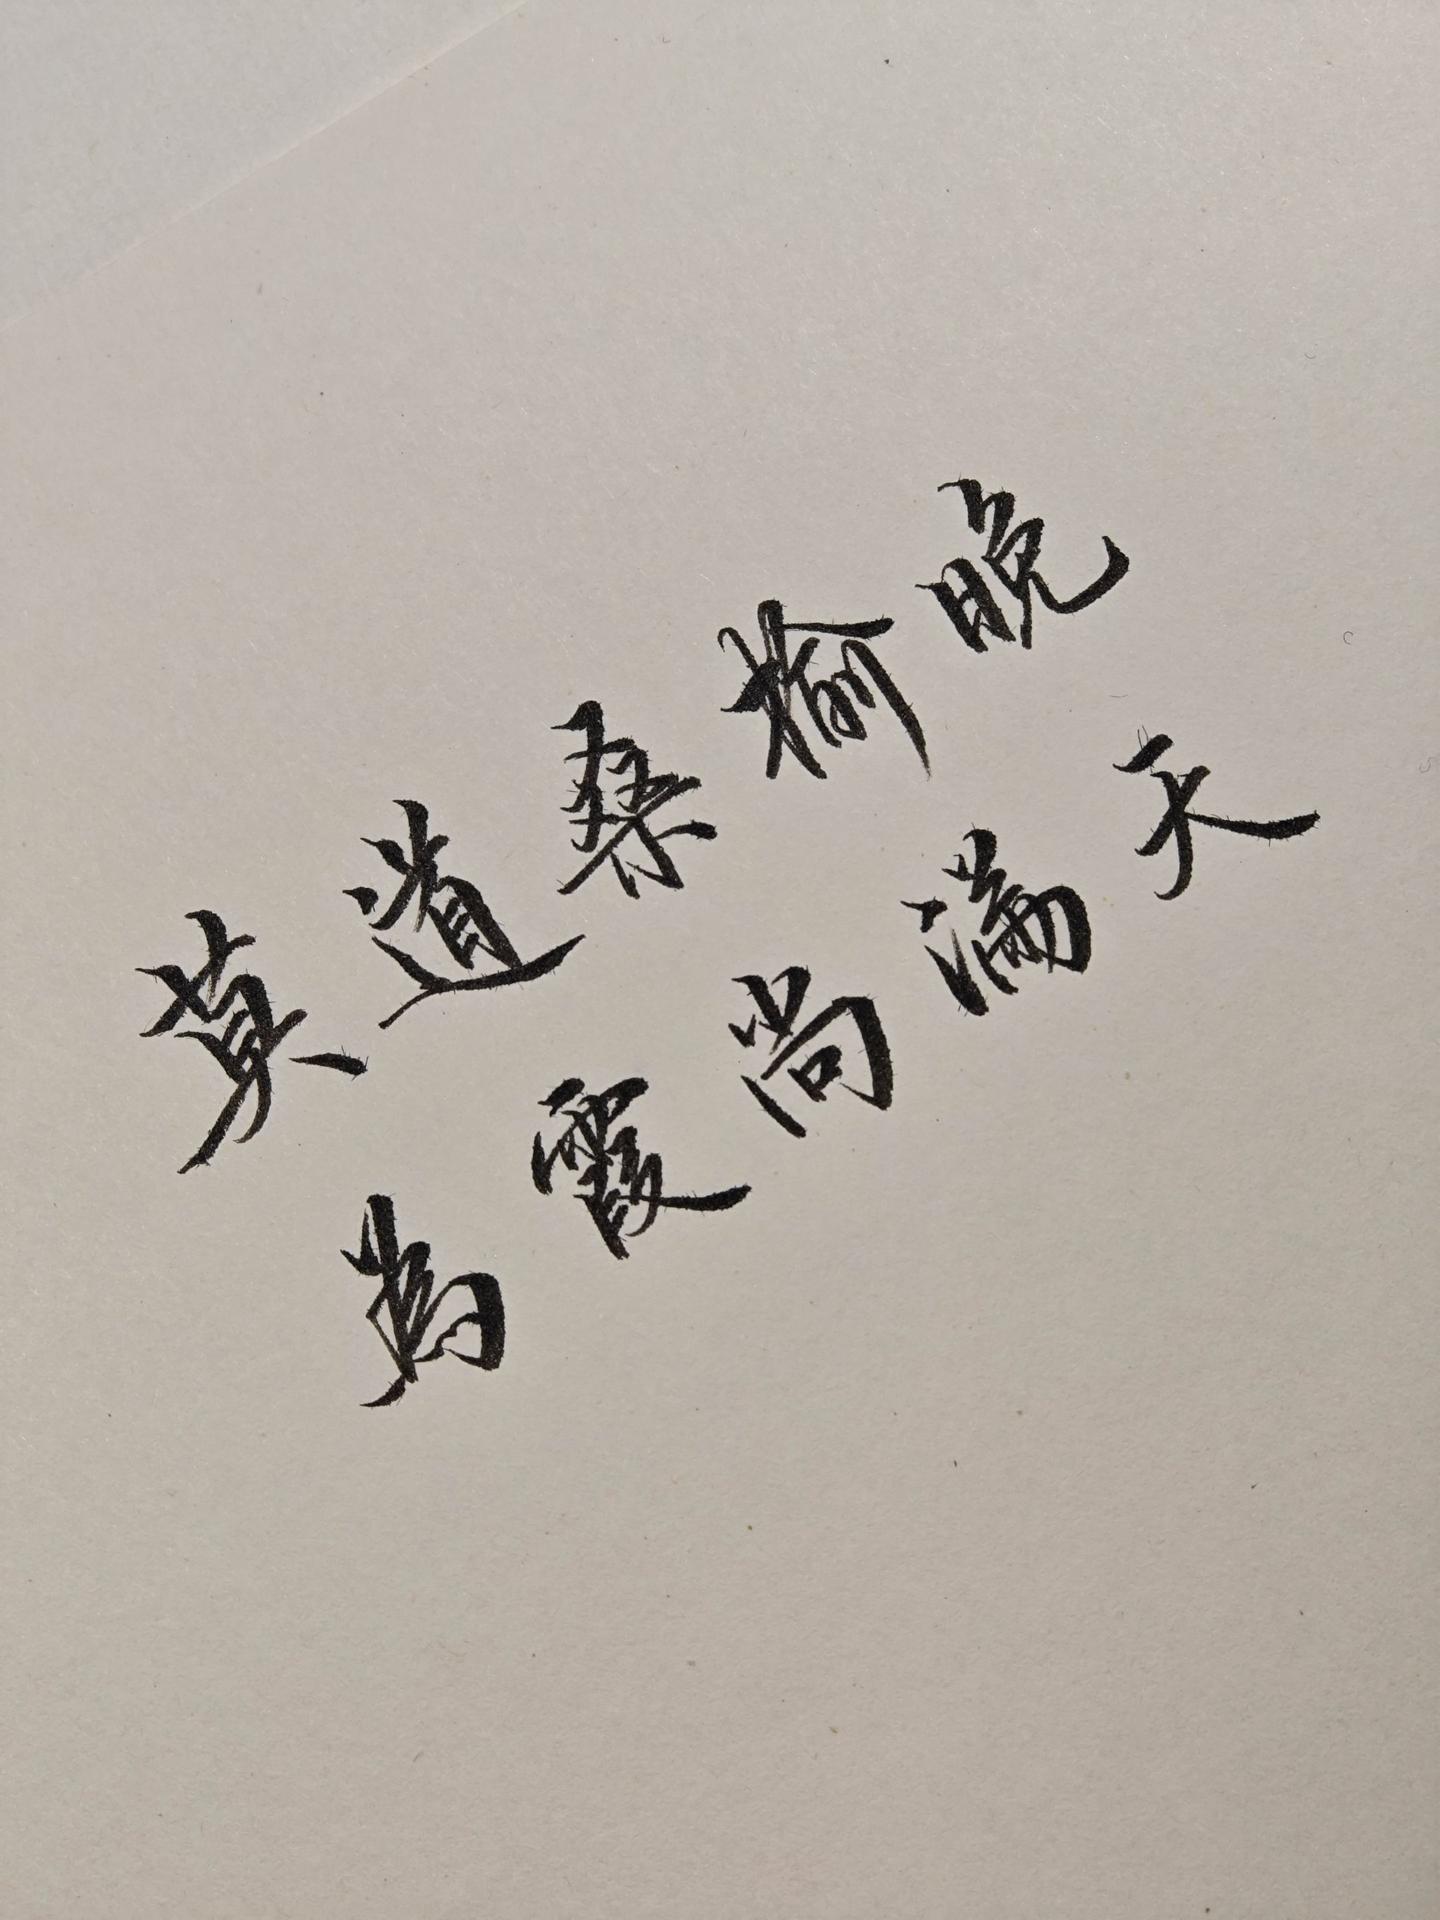 莫道桑榆晚
为霞尚满天